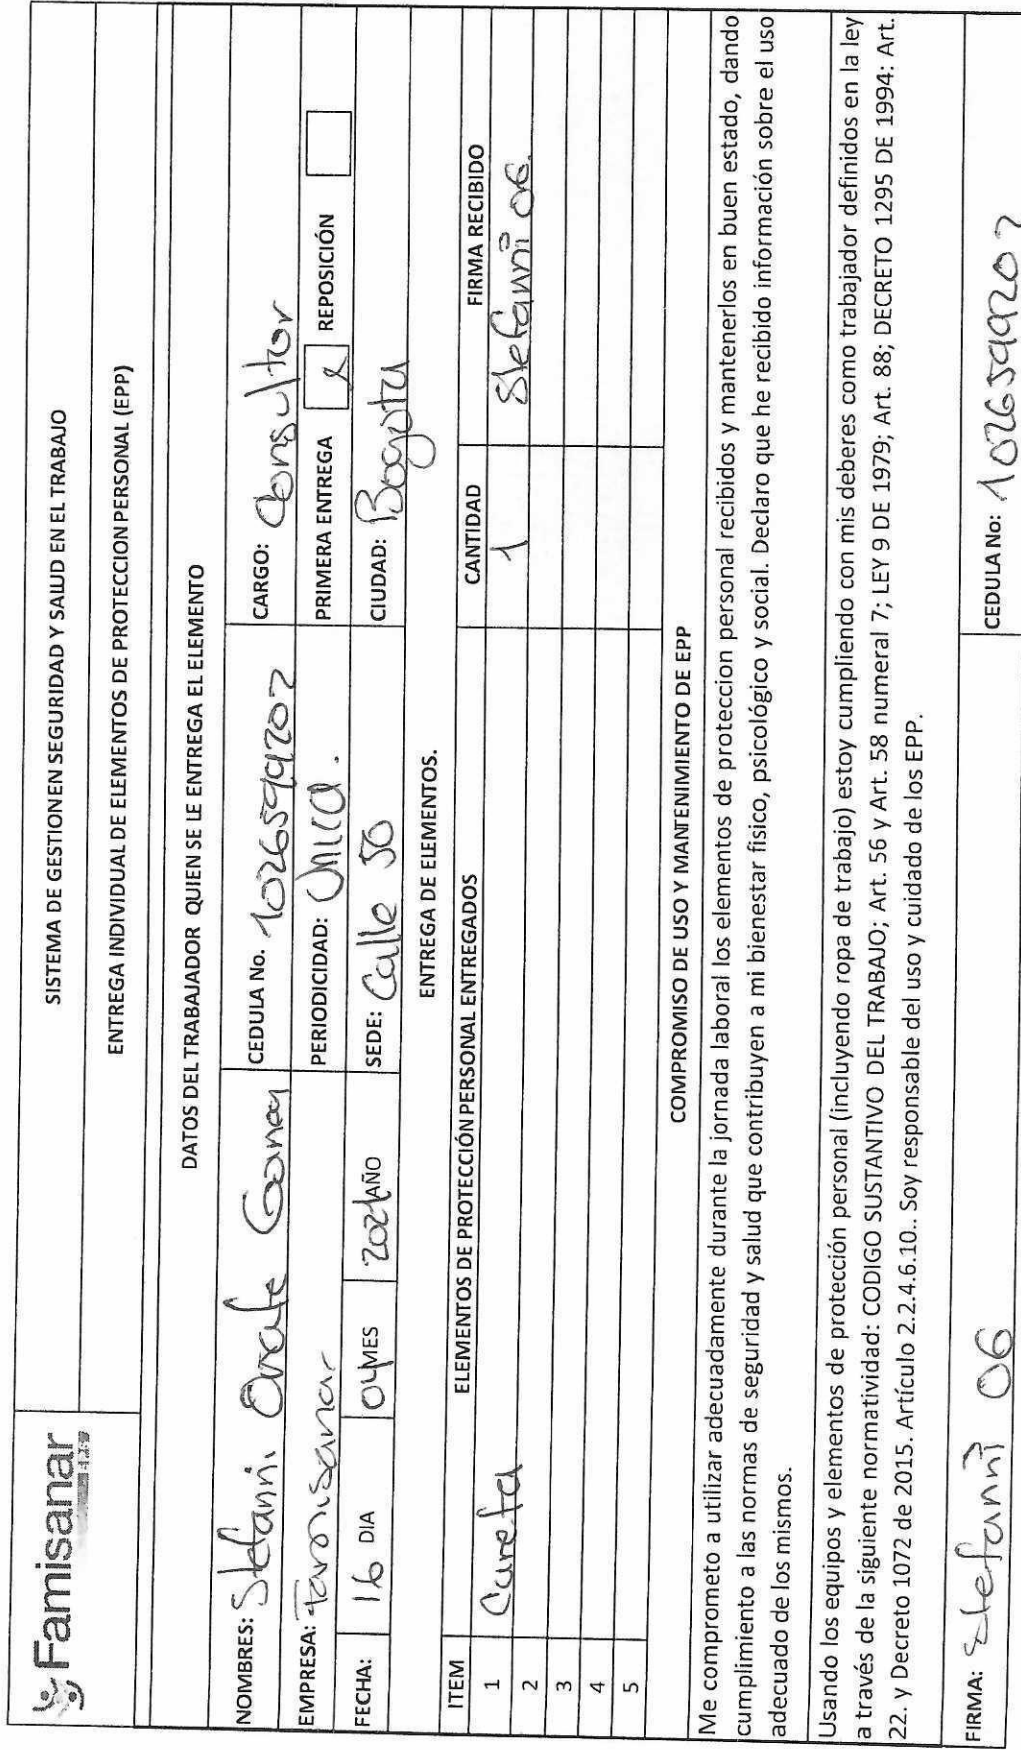 Famisanar
SISTEMA DE GESTION EN SEGURIDAD Y SALUD EN EL TRABAJO
ENTREGA INDIVIDUAL DE ELEMENTOS DE PROTECCION PERSONAL (EPP)
DATOS DEL TRABAJADOR QUIEN SE LE ENTREGA EL ELEMENTO
NOMBRES: Stefanni Ovalle CEDULA No. 1026599202 CARGO: Consultor
EMPRESA: Famisanar PERIODICIDAD: Unica. PRIMERA ENTREGA x REPOSICIÓN
FECHA: 16 DIA 04 MES 2021 AÑO SEDE: Calle 50 CIUDAD: Bogota
ENTREGA DE ELEMENTOS.
ITEM ELEMENTOS DE PROTECCIÓN PERSONAL ENTREGADOS CANTIDAD FIRMA RECIBIDO
1 Careta 1 Stefanni 06.
2
3
4
5
COMPROMISO DE USO Y MANTENIMIENTO DE EPP
Me comprometo a utilizar adecuadamente durante la jornada laboral los elementos de proteccion personal recibidos y mantenerlos en buen estado, dando
cumplimiento a las normas de seguridad y salud que contribuyen a mi bienestar físico, psicológico y social. Declaro que he recibido información sobre el uso
adecuado de los mismos.
Usando los equipos y elementos de protección personal (incluyendo ropa de trabajo) estoy cumpliendo con mis deberes como trabajador definidos en la ley
a través de la siguiente normatividad: CODIGO SUSTANTIVO DEL TRABAJO; Art. 56 y Art. 58 numeral 7; LEY 9 DE 1979; Art. 88; DECRETO 1295 DE 1994: Art.
22. y Decreto 1072 de 2015. Artículo 2.2.4.6.10.. Soy responsable del uso y cuidado de los EPP.
FIRMA: Stefanni 06 CEDULA No: 1026599202